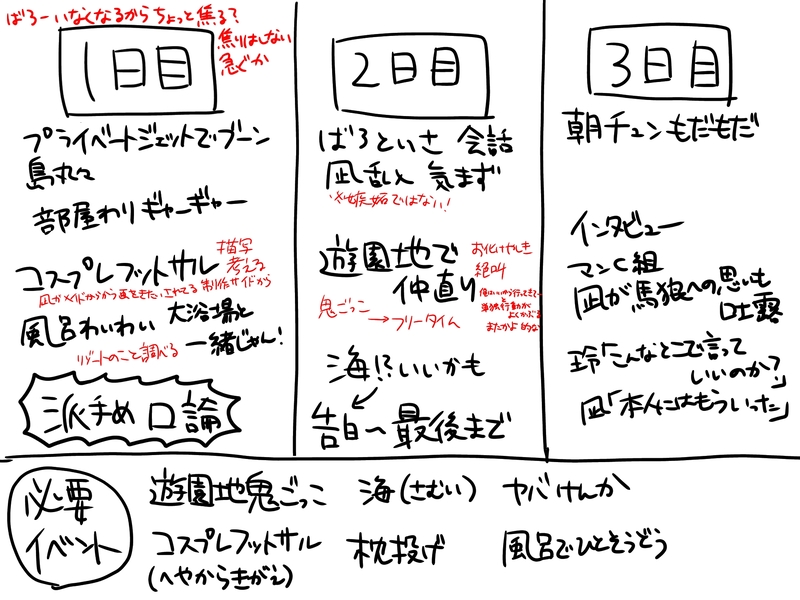 ばろーいなくなるからちょっと焦る?
焦りはしない
急ぐか
1日目
プライベートジェットでブーン
島丸々
部屋わりギャーギャー
コスプレフットサル
描写
考える
凪がメイドかうさ耳をきたいされてる 制作サイドから
風呂わいわい 大浴場と
一緒じゃん!
リゾートのこと調べる
派手め 口論
2日目
ばろといさ 会話
凪乱と 気まず
※嫉妬ではない!
遊園地で
仲直り
お化けやしき
絶叫
鬼ごっこ
→フリータイム
俺はいいから行ってきて〜
と
単独行動が
よくかぶる
またかよ 的な
海!?いいかも
告白〜最後まで
3日目
朝チュン もだもだ
インタビュー
マンC組
凪が馬狼への思いも
吐露
玲「こんなとこで言って
いいのか?」
凪「本人にはもういった」
必要
イベント
遊園地鬼ごっこ 海(さむい) ヤバけんか
コスプレフットサル 枕投げ 風呂でひとそうどう
(へやからきがえ)